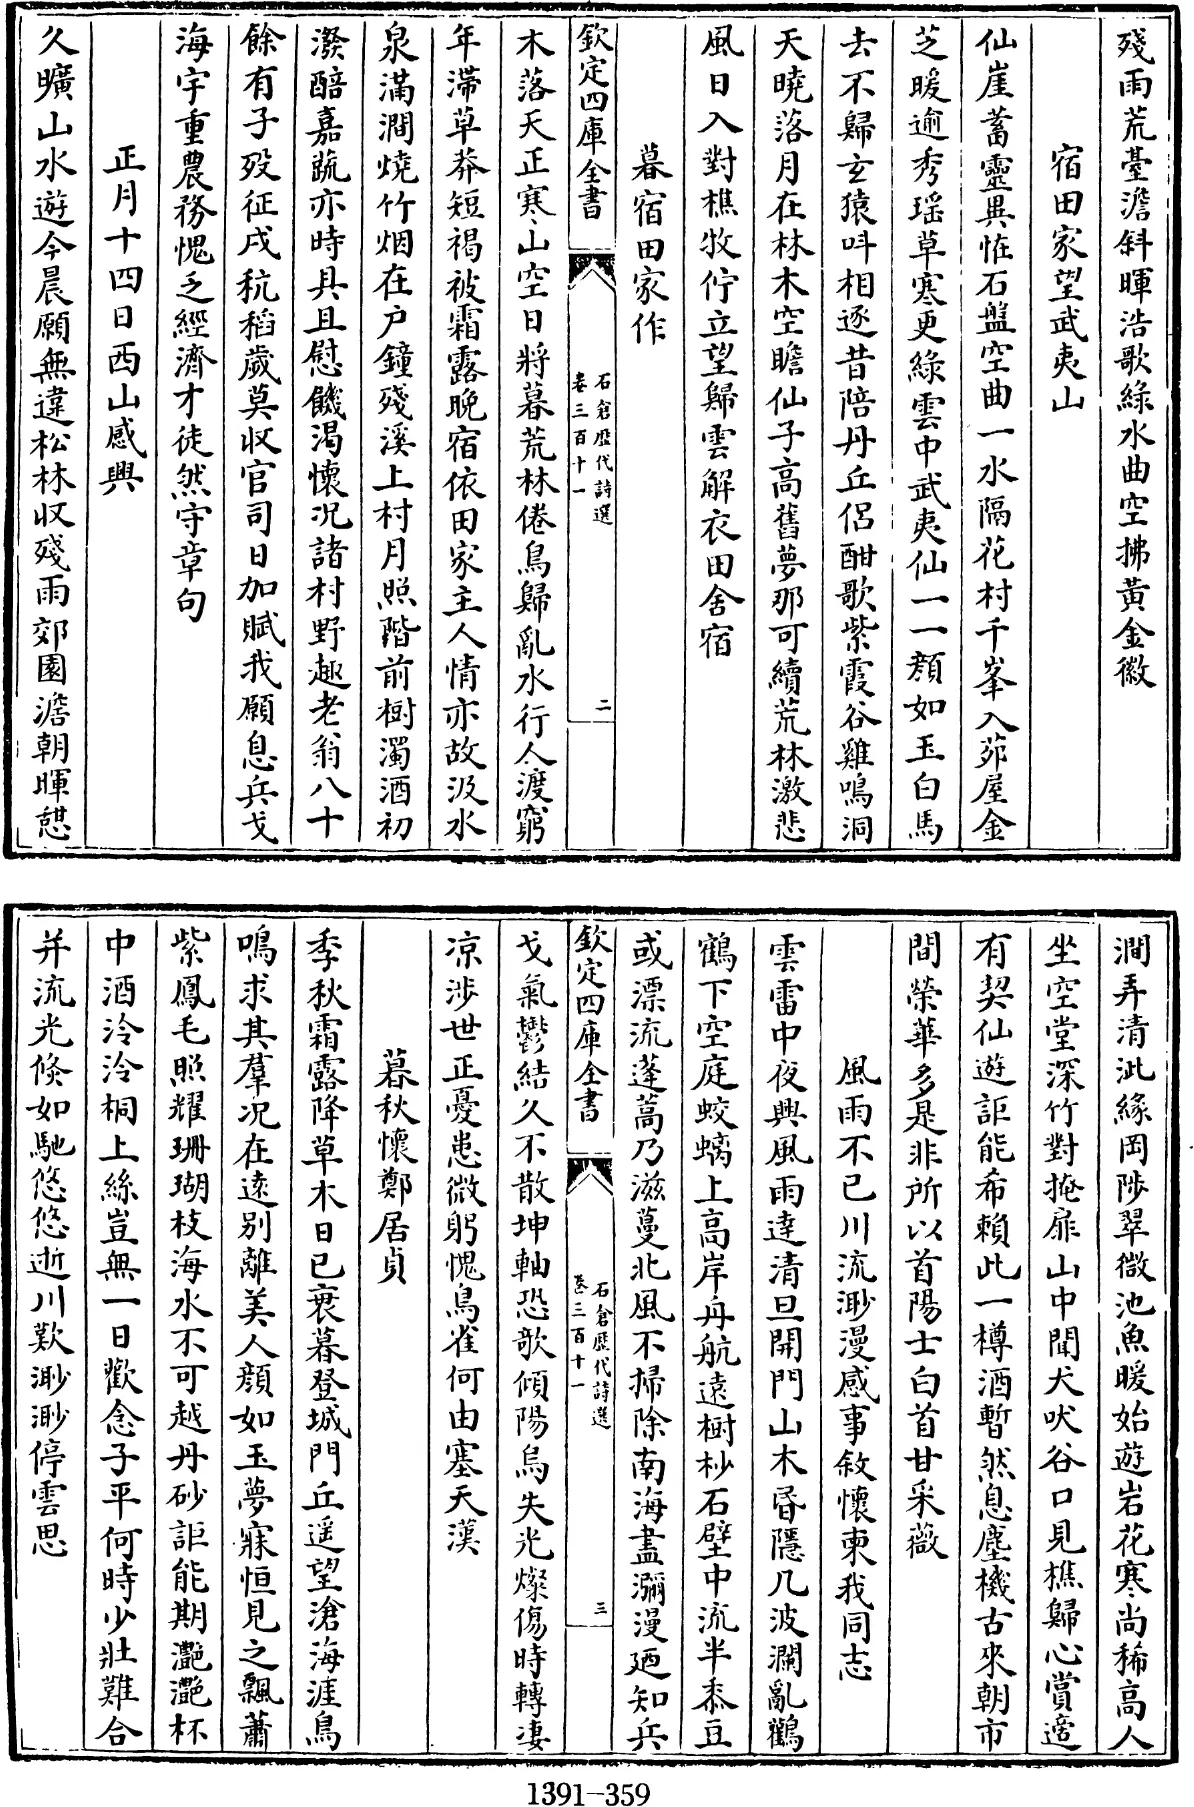 殘雨荒臺澹斜暉浩歌綠水曲空拂黃金徽
宿田家望武夷山
仙崖蓄靈異恠石盤空曲一水隔花村千峯入茆屋金
芝暖逾秀瑶草寒更綠雲中武夷仙一一顏如玉白馬
去不歸玄猿呌相逐昔陪丹丘侣酣歌紫霞谷雞鳴洞
天曉落月在林木空瞻仙子高舊夢那可續荒林激悲
風日入對樵牧佇立望歸雲解衣田舍宿
暮宿田家作
欽定四庫全書
石倉歷代詩選
卷三百十一
二
木落天正寒山空日將暮荒林倦鳥歸亂水行人渡窮
年滯草莽短褐被霜露晚宿依田家主人情亦故汲水
泉滿澗燒竹烟在户鐘殘溪上村月照階前樹濁酒初
潑醅嘉蔬亦時具且慰饑渴懷况諸村野趣老翁八十
餘有子歿征戍秔稻歲莫收官司日加賦我願息兵戈
海宇重農務愧乏經濟才徒然守章句
正月十四日西山感興
久曠山水遊今晨願無違松林收殘雨郊園澹朝暉憇
澗弄清泚緣岡陟翠微池魚暖始遊岩花寒尚稀高人
坐空堂深竹對掩扉山中聞犬吠谷口見樵歸心賞適
有契仙遊詎能希賴此一樽酒暫然息塵機古來朝市
間榮華多是非所以首陽士白首甘采薇
風雨不已川流渺漫感事敘懷柬我同志
雲雷中夜興風雨達清旦開門山木昏隱几波瀾亂鸛
鶴下空庭蛟螭上高岸舟航遠樹杪石壁中流半黍豆
或漂流蓬蒿乃滋蔓北風不掃除南海盡瀰漫廼知兵
欽定四庫全書
石倉歷代詩選
卷三百十一
三
戈氣鬱結久不散坤軸恐欹傾陽烏失光燦傷時轉凄
凉涉世正憂患微躬愧鳥雀何由塞天漢
暮秋懷鄭居貞
季秋霜露降草木日已衰暮登城門丘遥望滄海涯鳥
鳴求其羣况在遠别離美人顏如玉夢寐恒見之飄蕭
紫鳳毛照耀珊瑚枝海水不可越丹砂詎能期灔灔杯
中酒泠泠桐上絲豈無一日歡念子平何時少壯難合
并流光倏如馳悠悠逝川歎渺渺停雲思
1391-359